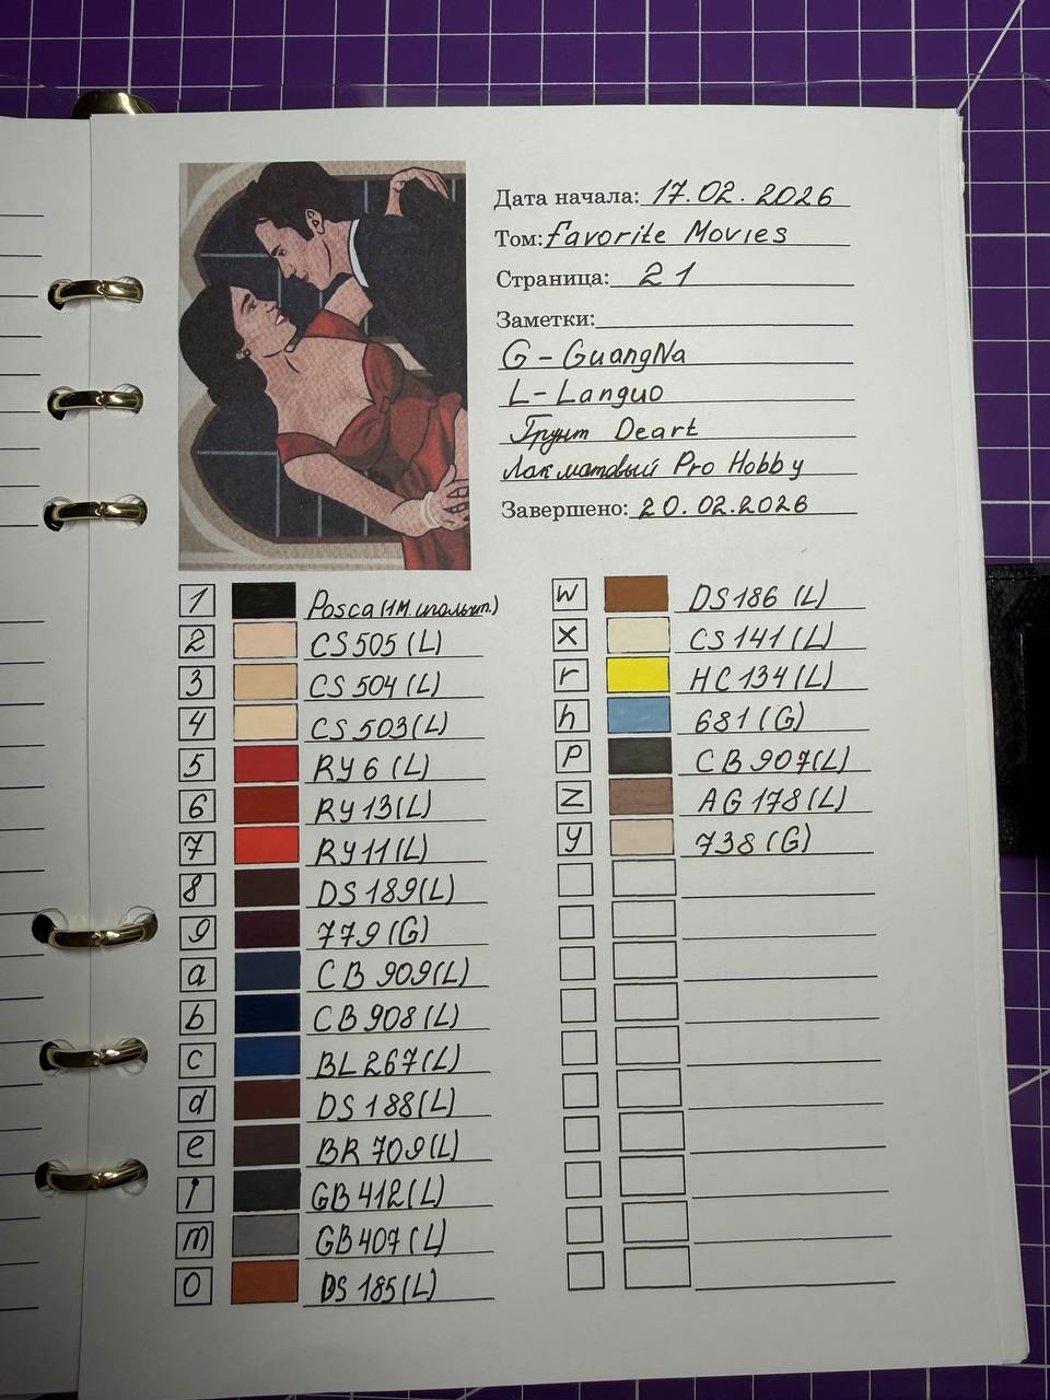 Дата начала: 17.02.2026
Том: Favorite Movies
Страница: 21
Заметки:
G - GuangNa
L - Languo
Грунт Deart
Лак матовый Pro Hobby
Завершено: 20.02.2026
1 Posca (1М. игольчт.)
2 CS505 (L)
3 CS504 (L)
4 CS503 (L)
5 RY6 (L)
6 RY13 (L)
7 RY11 (L)
8 DS189 (L)
9 779 (G)
a CB909 (L)
b CB908 (L)
c BL267 (L)
d DS188 (L)
e BR709 (L)
GB412 (L)
m GB407 (L)
o DS185 (L)
w DS186 (L)
x CS141 (L)
r HC134 (L)
h 681 (G)
p CB907 (L)
z AG178 (L)
y 738 (G)